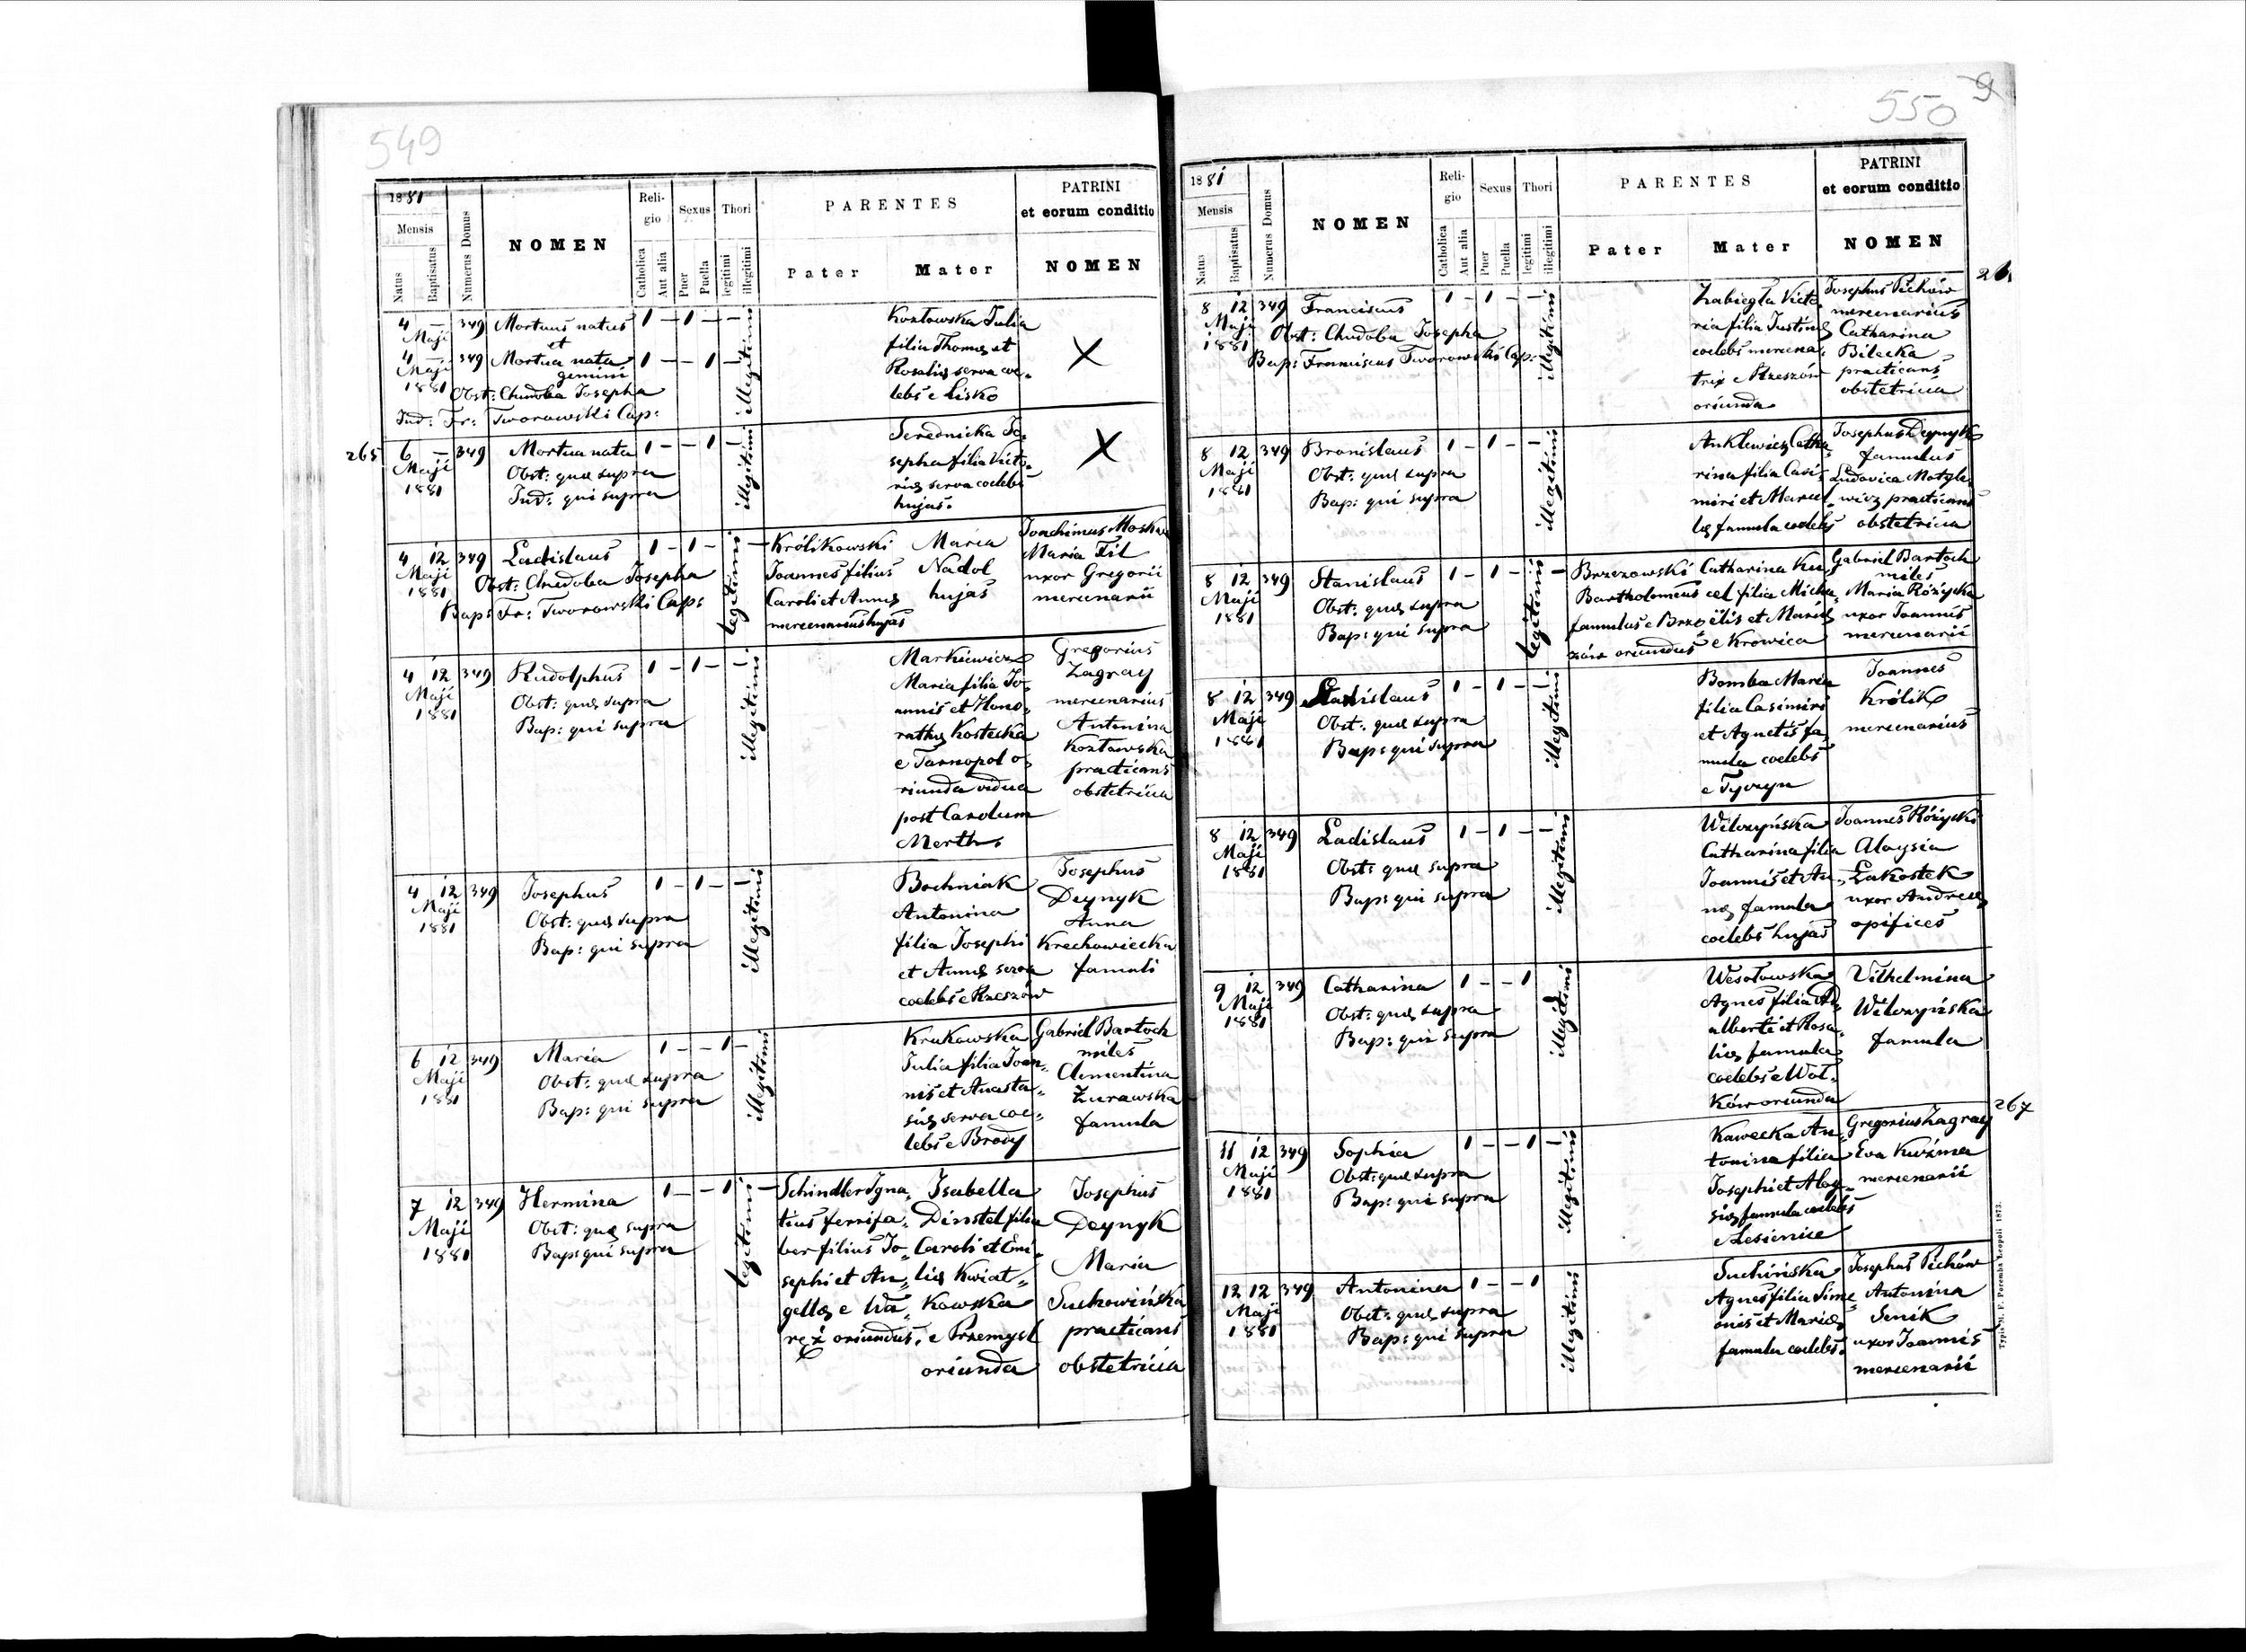 549
1881
Mensis
Natus
Baptisatus
Numerus Domus
NOMEN
Religio
Catholica
Aut alia
Sexus
Puer
Puella
Thori
legitimi
illegitimi
PARENTES
Pater
Mater
PATRINI
et eorum conditio
NOMEN
4 — 349 Mortuus natus 1 – 1 – –
Maji
et
4 — 349 Mortua nata 1 – – 1 –
Maji
gemini
1881
Obst: Chudoba Josepha
Ind: Fr: Tworowski Cap:
illegitimi
Kozłowska Julia
filia Thomæ et
Rosaliæ serva coe-
lebs e Lisko
X
265
6 — 349 Mortua nata 1 – – 1 –
Maji
1881
Obst: quæ supra
Ind: qui supra
illegitimi
Serednicka Jo-
sepha filia Victo-
riæ serva coelebs
hujas.
X
4 12 349 Ladislaus 1 – 1 – –
Maji
1881
Obst: Chudoba Josepha
Bap: Fr: Tworowski Cap:
legitimi
Królikowski
Joannes filius
Caroli et Annæ
mercenarius hujas
Maria
Nadol
hujas
Joachimus Moskwa
Maria Fil
uxor Gregorii
mercenarii
4 12 349 Rudolphus 1 – 1 – –
Maji
1881
Obst: quæ supra
Bap: qui supra
illegitimi
Markiewicz
Maria filia Jo-
annis et Hono-
rathæ Kostecka
e Tarnopol o-
riunda vidua
post Carolum
Merth
Gregorius
Zagray
mercenarius
Antonina
Kozłowska
practicans
obstetricia
4 12 349 Josephus 1 – 1 – –
Maji
1881
Obst: quæ supra
Bap: qui supra
illegitimi
Bochniak
Antonina
filia Josephi
et Annæ serva
coelebs e Rzeszów
Josephus
Deynyk
Anna
Krechowiecka
famuli
6 12 349 Maria 1 – – 1 –
Maji
1881
Obst: quæ supra
Bap: qui supra
illegitimi
Krukowska
Julia filia Joan-
nis et Anasta-
siæ serva coe-
lebs e Brody
Gabriel Bartoch
miles
Clementina
Żurawska
famula
7 12 349 Hermina 1 – – 1 –
Maji
1881
Obst: quæ supra
Bap: qui supra
legitimi
Schindler Igna-
tius ferrifa-
ber filius Jo-
sephi et An-
gellæ e Wa-
ręż oriundus.
Isabella
Dinstel filia
Caroli et Emi-
liæ Kwiat-
kowska
e Przemysl
oriunda
Josephus
Deynyk
Maria
Suchowińska
practicans
obstetricia
550
9
1881
Mensis
Natus
Baptisatus
Numerus Domus
NOMEN
Religio
Catholica
Aut alia
Sexus
Puer
Puella
Thori
legitimi
illegitimi
PARENTES
Pater
Mater
PATRINI
et eorum conditio
NOMEN
8 12 349 Franciscus 1 – 1 – –
Maji
1881
Obst: Chudoba Josepha
Bap: Franciscus Tworowski Cap:
illegitimi
Zabiegła Victo-
ria filia Justinæ
coelebs mercena-
trix e Rzeszów
oriunda
Josephus Pichów
mercenarius
Catharina
Bilecka
practicans
obstetricia
8 12 349 Bronislaus 1 – 1 – –
Maji
1881
Obst: quæ supra
Bap: qui supra
illegitimi
Anklewicz Catha-
rina filia Casi-
miri et Marcel-
læ famula coelebs
Josephus Deynyk
famulus
Ludovica Motyle-
wicz practicans
obstetricia
8 12 349 Stanislaus 1 – 1 – –
Maji
1881
Obst: quæ supra
Bap: qui supra
legitimi
Brzezowski
Bartholomeus
famulus e Brzo
zów oriundus
Catharina Ku
cel filia Micha-
ëlis et Mariæ
e Krowica
Gabriel Bartoch
miles
Maria Różycka
uxor Joannis
mercenarii
8 12 349 Stanislaus 1 – 1 – –
Maji
1881
Obst: quæ supra
Bap: qui supra
illegitimi
Bomba Maria
filia Casimiri
et Agnetis fa-
mula coelebs
e Tyczyn
Joannes
Królik
mercenarius
8 12 349 Ladislaus 1 – 1 – –
Maji
1881
Obst: quæ supra
Bap: qui supra
illegitimi
Wilczyńska
Catharina filia
Joannis et An-
næ famula
coelebs hujas
Joannes Różycki
Aloysia
Łakostek
uxor Andreæ
opifices
9 12 349 Catharina 1 – – 1
Maji
1881
Obst: quæ supra
Bap: qui supra
illegitimi
Wesołowska
Agnes filia Ad-
alberti et Rosa-
liæ famula
coelebs e Woł-
ków oriunda
Vilhelmina
Wilczyńska
famula
267
11 12 349 Sophia 1 – – 1 –
Maji
1881
Obst: quæ supra
Bap: qui supra
illegitimi
Kawecka An-
tonina filia
Josephi et Aloy-
siæ famula coelebs
e Lesienice
Gregorius Zagray
Eva Kuźma
mercenarii
12 12 349 Antonina 1 – – 1
Maji
1881
Obst: quæ supra
Bap: qui supra
illegitimi
Suchińska
Agnes filia Sime-
onis et Mariæ
famula coelebs.
Josephus Pichów
Antonina
Senik
uxor Joannis
mercenarii
Typis M. F. Poremba Leopoli 1873.